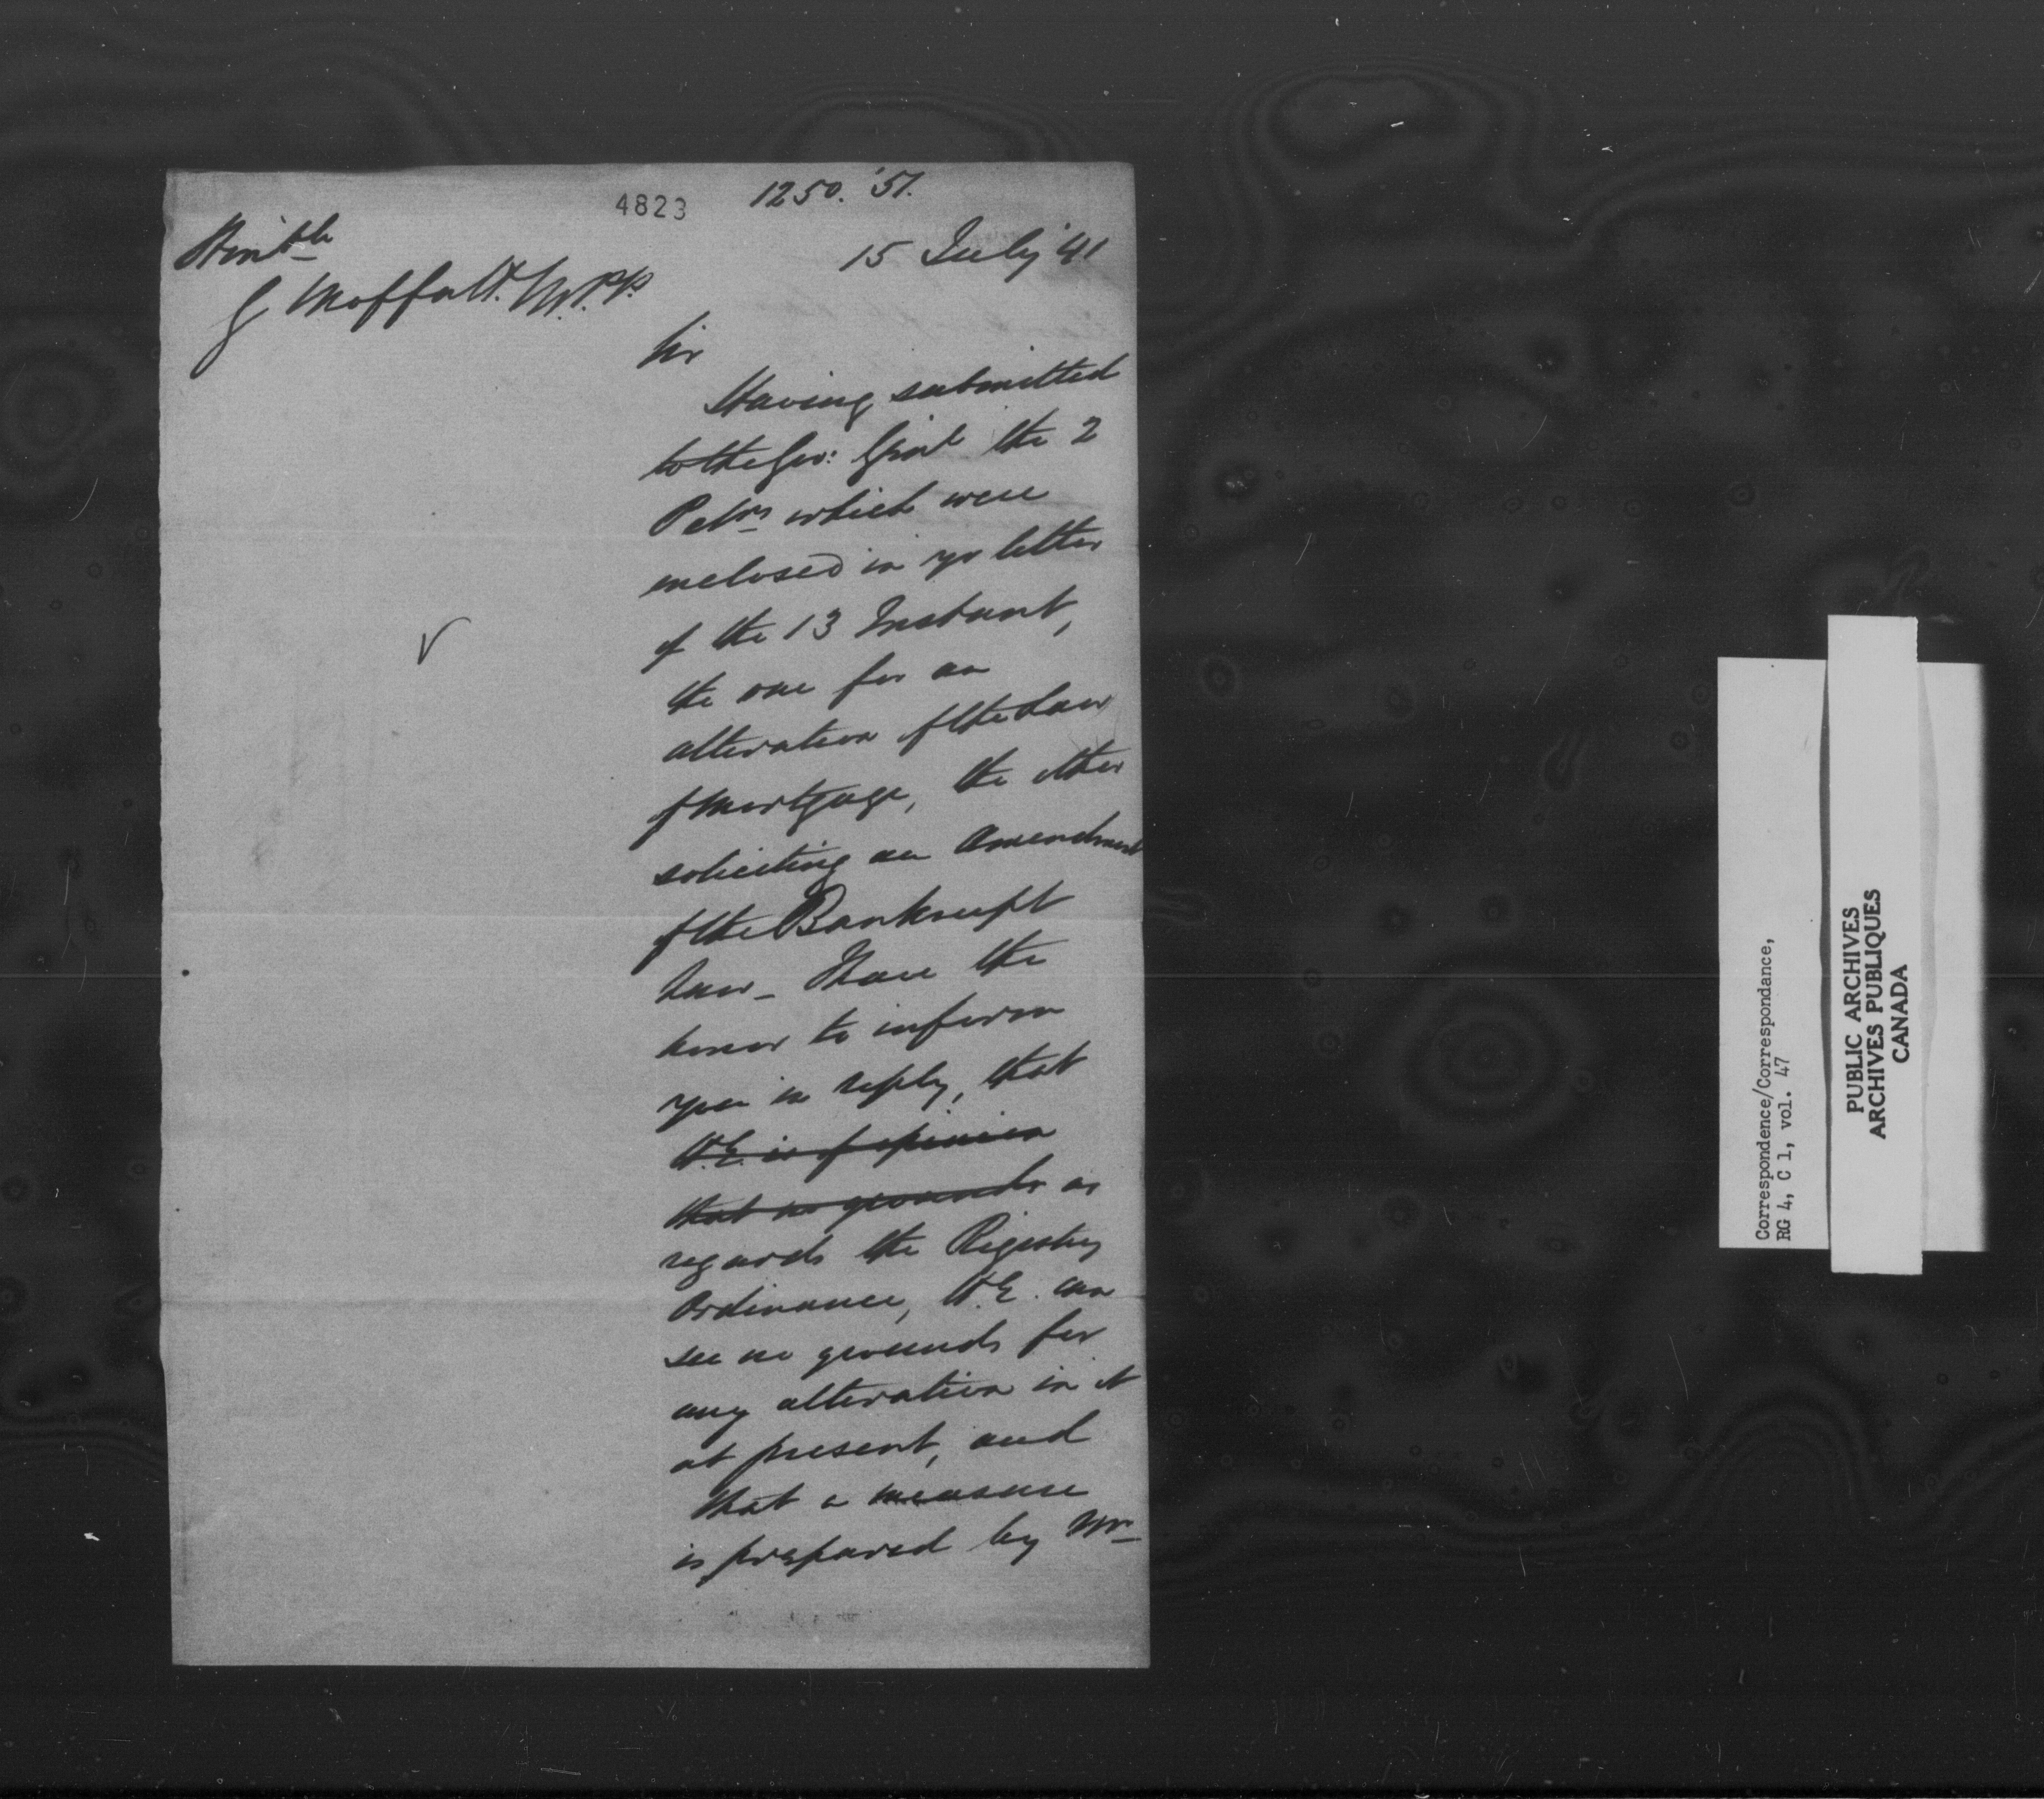 4823
1250. '51.
Honble
G Moffatt. M.P.P.
15 July '41
Sir
Having submitted
to the Gov: Genl the 2
Petns which were
enclosed in yr letter
of the 13 Instant,
the one for an
alteration of the Law
of Mortgage, the other
soliciting an Amendment
of the Bankrupt
Law_ I have the
honor to inform
you in reply, that
H.E. is of opinion
that no grounds as
regards the Registry
Ordinance, H.E. can
see no grounds for
any alteration in it
at present, and
that a measure
is prepared by Mr
Correspondence/Correspondance,
RG 4, C 1, vol. 47
PUBLIC ARCHIVES
ARCHIVES PUBLIQUES
CANADA